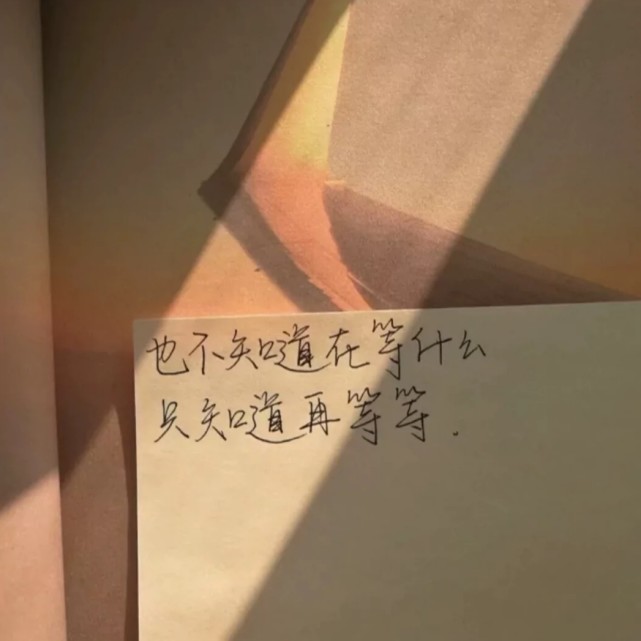 也不知道在等什么
只知道再等等.